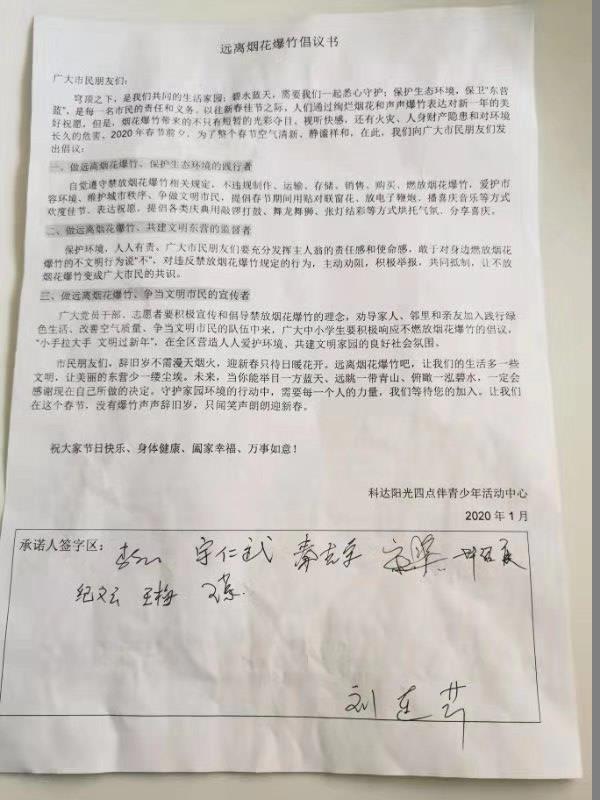 远离烟花爆竹倡议书
广大市民朋友们：
穹顶之下，是我们共同的生活家园；碧水蓝天，需要我们一起悉心守护；保护生态环境，保卫“东营
蓝”，是每一名市民的责任和义务。以往新春佳节之际，人们通过绚烂烟花和声声爆竹表达对新一年的美
好祝愿，但是，烟花爆竹带来的不只有短暂的光彩夺目、视听快感，还有火灾、人身财产隐患和对环境
长久的危害。2020年春节前夕，为了整个春节空气清新、静谧祥和，在此，我们向广大市民朋友们发
出倡议：
一、做远离烟花爆竹、保护生态环境的践行者
自觉遵守禁放烟花爆竹相关规定，不违规制作、运输、存储、销售、购买、燃放烟花爆竹，爱护市
容环境、维护城市秩序、争做文明市民，提倡春节期间用贴对联窗花、放电子鞭炮、播喜庆音乐等方式
欢度佳节、表达祝愿，提倡各类庆典用敲锣打鼓、舞龙舞狮、张灯结彩等方式烘托气氛、分享喜庆。
二、做远离烟花爆竹、共建文明东营的监督者
保护环境，人人有责。广大市民朋友们要充分发挥主人翁的责任感和使命感，敢于对身边燃放烟花
爆竹的不文明行为说“不”，对违反禁放烟花爆竹规定的行为，主动劝阻，积极举报，共同抵制，让不放
烟花爆竹变成广大市民的共识。
三、做远离烟花爆竹、争当文明市民的宣传者
广大党员干部、志愿者要积极宣传和倡导禁放烟花爆竹的理念，劝导家人、邻里和亲友加入践行绿
色生活、改善空气质量、争当文明市民的队伍中来，广大中小学生要积极响应不燃放烟花爆竹的倡议，
“小手拉大手 文明过新年”，在全区营造人人爱护环境、共建文明家园的良好社会氛围。
市民朋友们，辞旧岁不需漫天烟火，迎新春只待日暖花开。远离烟花爆竹吧，让我们的生活多一些
文明，让美丽的东营少一缕尘埃。未来，当你能举目一方蓝天、远眺一带青山、俯瞰一泓碧水，一定会
感谢现在自己所做的决定。守护家园环境的行动中，需要每一个人的力量，我们等待您的加入。让我们
在这个春节，没有爆竹声声辞旧岁，只闻笑声朗朗迎新春。
祝大家节日快乐、身体健康、阖家幸福、万事如意！
科达阳光四点伴青少年活动中心
2020年1月
承诺人签字区：
宇仁武
纪文云 王梅
刘连芬